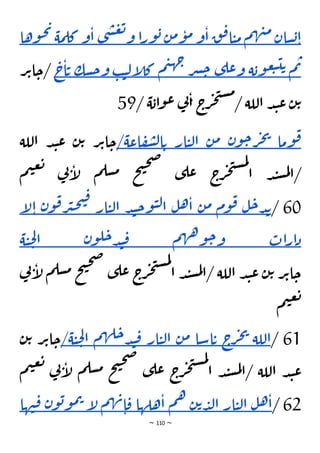 انسان منهم منافق او مؤمن نورا و تغشى او كلمة نحوها
ثم يتبعونه وعلى جسر جهنم كلاليب وحسك تأخذ/جابر
بن عبد الله/مستخرج ابي عوانة/59
قوما يخرجون من النار بالشفاعة/جابر بن عبد الله
/المسند المستخرج على صحيح مسلم لأبي نعيم
60/ يدخل قوم من اهل التوحيد النار فيحترقون الا
دارات وجوههم فيدخلون الجنة
جابر بن عبد الله/المسند المستخرج على صحيح مسلم لأبي
نعيم
61/ الله يخرج ناسا من النار فيدخلهم الجنة/جابر بن
عبد الله /المسند المستخرج على صحيح مسلم لأبي نعيم
62/ اهل النار الذين هم اهلها فانهم لا يموتون فيها
~ 110 ~